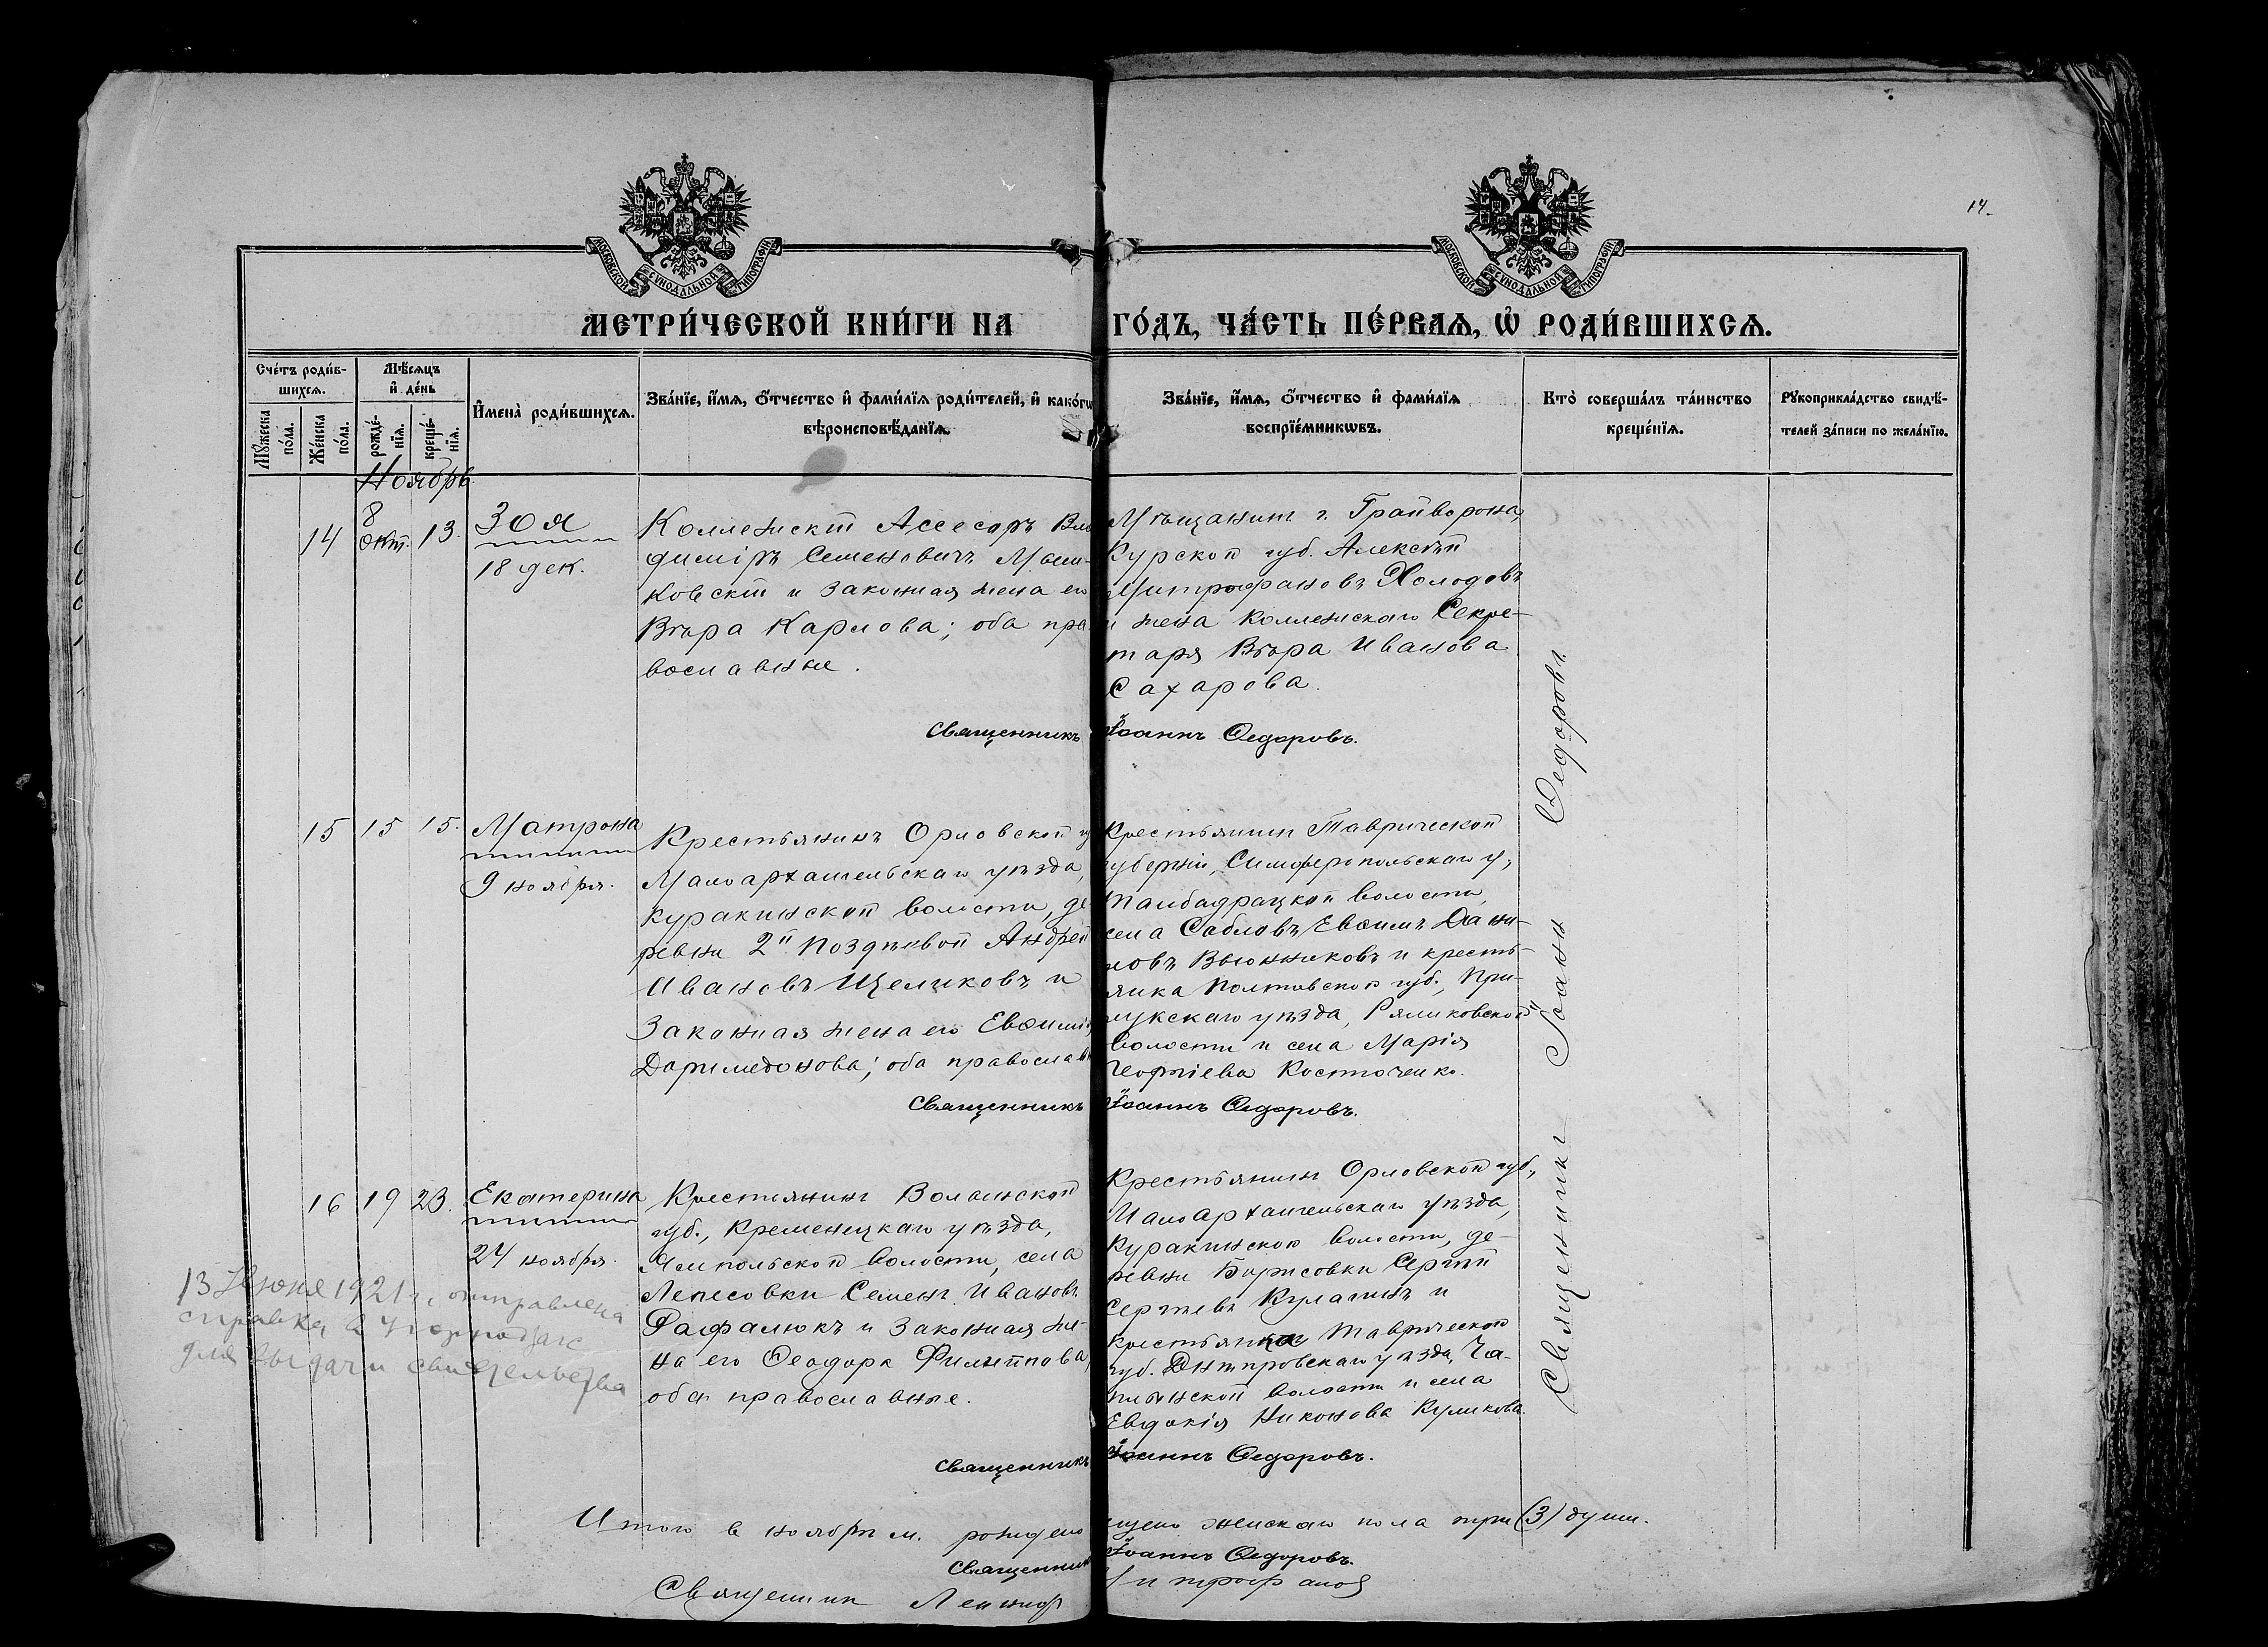 14.
МОСКОВСКОЙ СѴНОДАЛЬНОЙ ТИПОГРАФІИ
МОСКОВСКОЙ СѴНОДАЛЬНОЙ ТИПОГРАФІИ
МЕТРИ́ЧЕСКОЙ КНИ́ГИ НА ГО́ДЪ, ЧА́СТЬ ПЕ́РВАѦ, Ѡ҆ РОДИ́ВШИХСѦ.
Сче́тъ роди́в-
шихсѧ.
Мѣ́сѧцъ
и҆ де́нь
Мꙋ́жеска
по́ла.
Же́нска
по́ла.
рожде́-
нїѧ.
креще́-
нїѧ.
И҆мена̀ роди́вшихсѧ.
Зва́нїе, и҆́мѧ, ѻ҆́тчество и҆ фами́лїѧ роди́телей, и҆ како́гѡ
вѣроисповѣ́данїѧ.
Зва́нїе, и҆́мѧ, ѻ҆́тчество и҆ фами́лїѧ
воспрїе́мникѡвъ.
Кто̀ соверша́лъ та́инство
креще́нїѧ.
Рꙋкоприкла́дство свидѣ́-
телей за́писи по жела́нїю.
Ноябрь
14
8
окт.
13.
Зоя
18 дек.
Коллежскій Ассесоръ Вла
диміръ Семеновичъ
ковскій и законная жена его
Вѣра Карлова; оба пра
вославные.
Мѣщанинъ г. Грайворона,
Курской губ. Алексѣй
Митрофановъ Холодовъ
и жена Коллежскаго Секре-
таря Вѣра Иванова
Сахарова.
Священникъ Іоаннъ Ѳедоровъ.
15
15
15.
Матрона
9 ноября.
Крестьянинъ Орловской гу
Малоархангельскаго уѣзда,
Куракинской волости, де
ревни 2й Поздѣевой Андрей
Ивановъ Щеликовъ и
законная жена его Евѳимія
Даримедонова; оба православн
Крестьянинъ Таврической
губерніи, Симферопольскаго у,
волости,
села Сабловъ Евѳимъ Дани-
ловъ Вьюнниковъ и кресть-
янка Полтавской губ., При-
лукскаго уѣзда,
волости и села Марія
Георгіева Костюченко.
Священникъ Іоаннъ Ѳедоровъ.
16
19
23.
Екатерина
24 ноября.
Крестьянинъ Волынской
губ., Кременецкаго уѣзда,
Ямпольской волости, села
Лепесовки Семенъ Ивановъ
Фафалюкъ и законная же-
на его Ѳеодора Филиппова,
оба православные.
Крестьянинъ Орловской губ.,
Малоархангельскаго уѣзда,
Куракинской волости, де-
ревни Борисовки Сергѣй
Сергѣевъ Кулагинъ и
крестьянка Таврической
губ. Днѣпровскаго уѣзда, Ча-
плынской волости и села
Евдокія Никонова Куликова.
Священникъ Іоаннъ Ѳедоровъ.
13 Июня 1921 г. отправлена
справка в
для выдачи свидетельства
Священникъ Іоаннъ Ѳедоровъ.
Итого въ ноябрѣ м. рождено женскаго пола три (3) души.
Священникъ Іоаннъ Ѳедоровъ.
Священник